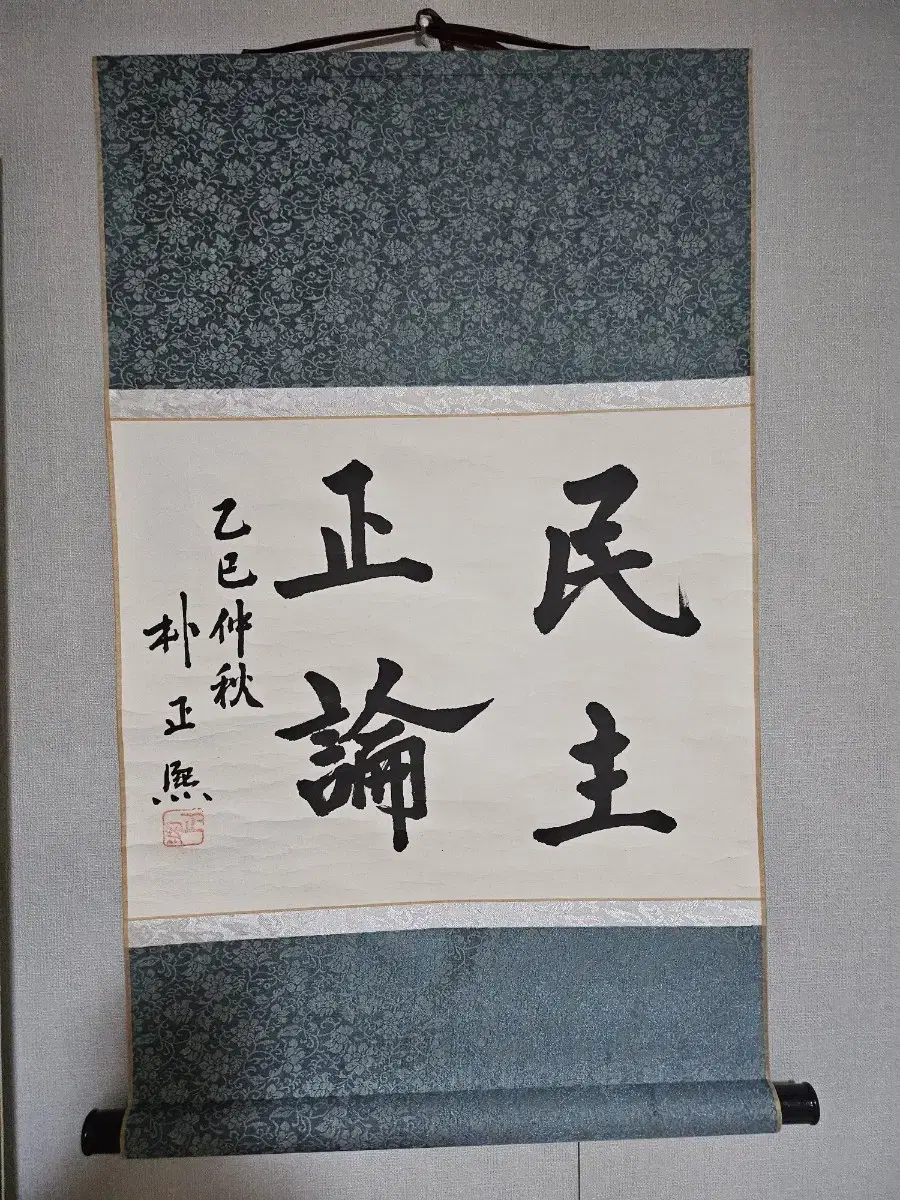 民主
正論
乙巳仲秋
朴正熙